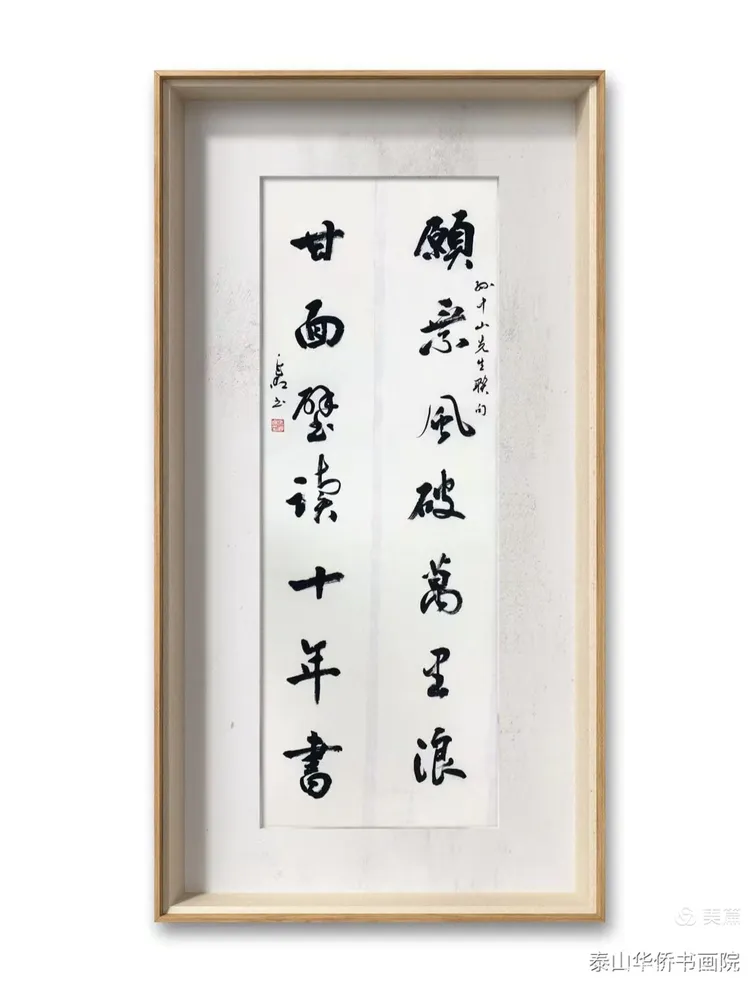 願乘風破萬里浪
孙中山先生联句
甘面壁讀十年書
美篇
泰山华侨书画院